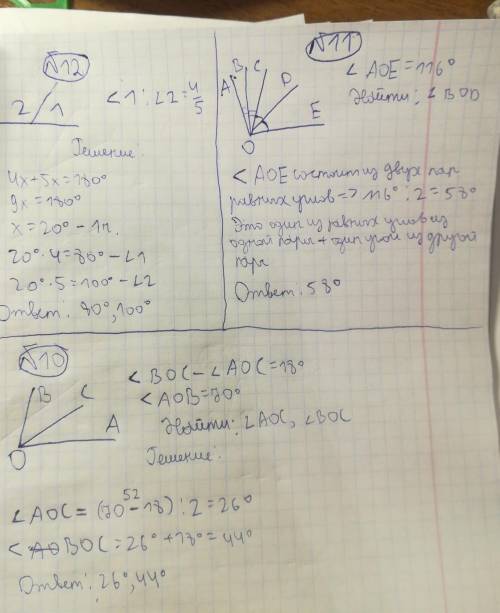 №12
2 1
∠1 : ∠2 = 4/5
Решение:
4x+5x=180°
9x=180°
x=20° - 1ч.
20°·4=80° - ∠1
20°·5=100° - ∠2
Ответ: 80°, 100°
№11
A B C D E O
∠AOE=116°
Найти: ∠BOD
∠AOE состоит из двух пар
равных углов => 116° : 2 = 58°
Это один из равных углов из
одной пары + один угол из другой
пары
Ответ: 58°
№10
B C A O
∠BOC - ∠AOC = 18°
∠AOB=70°
Найти: ∠AOC, ∠BOC
Решение:
52
∠AOC = (70 - 18) : 2 = 26°
∠BOC = 26° + 18° = 44°
Ответ: 26°, 44°